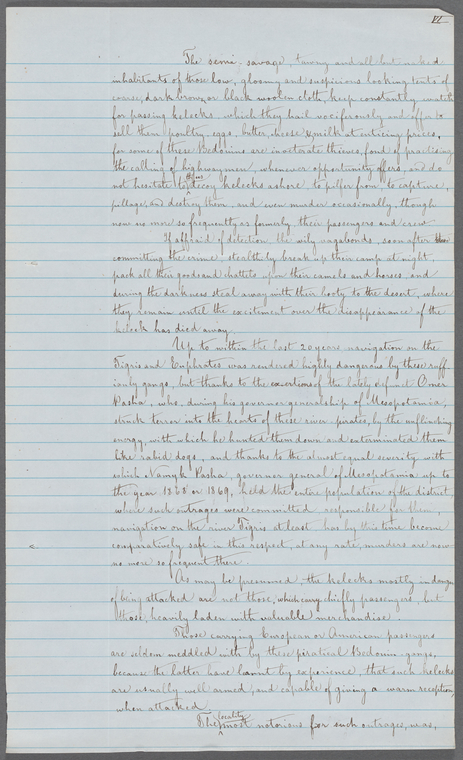 VI
The semi-savage, tawny and all but naked
inhabitants of those low, gloomy and suspicious looking tents of
coarse, dark brown or black woolen cloth, keep constantly watch
for passing kelecks which they hail vociferously and offer to
sell them poultry, eggs, butter, cheese & milk at enticing prices,
for some of these Bedouins are inveterate thieves, fond of practising
the calling of highwaymen, whenever opportunity offers, and do
not hesitate to decoy kelecks ashore to pilfer from, to capture,
pillage, and destroy them, and even murder occasionally, though
now no more so frequently as formerly their passengers and crew.
If afraid of detection the wily vagabonds, soon after
committing the crime stealthily break up their camp at night,
pack all their goods and chattels upon their camels and horses, and
during the darkness steal away with their booty to the desert, where
they remain until the excitment over the disappearance of the
keleck has died away.
Up to within the last 20 years navigation on the
Tigris and Euphrates was rendered highly dangerous by these ruff-
ianly gangs, but thanks to the exertions of the lately defunct Omer
Pasha, who, during his governor generalship of Mesopotamia,
struck terror into the hearts of these river-pirates, by the unflinching
energy, with which he hunted them down and exterminated them
like rabid dogs, and thanks to the almost equal severity with
which Namyk Pasha, governor general of Mesopotamia up to
the year 1868 or 1869, held the entire population of the district,
where such outrages were committed responsible for them,
navigation on the river Tigris at least has by this time become
comparatively safe in this respect, at any rate, murders are now
no more so frequent there.
As may be presumed, the kelecks mostly in danger
of being attacked are not those, which carry chiefly passengers, but
those, heavily laden with valuable merchandise.
Those carrying European or American passengers
are seldom meddled with by these piratical Bedouin-gangs,
because the latter have learnt by experience, that such kelecks
are usually well armed, and capable of giving a warm reception,
when attacked.
The locality most notorious for such outrages, was,